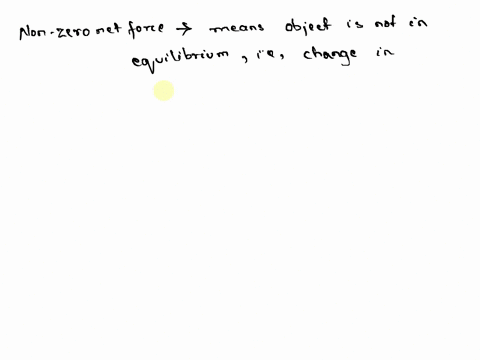 Non-zero net force → means object is not in
equilibrium, i.e, change in